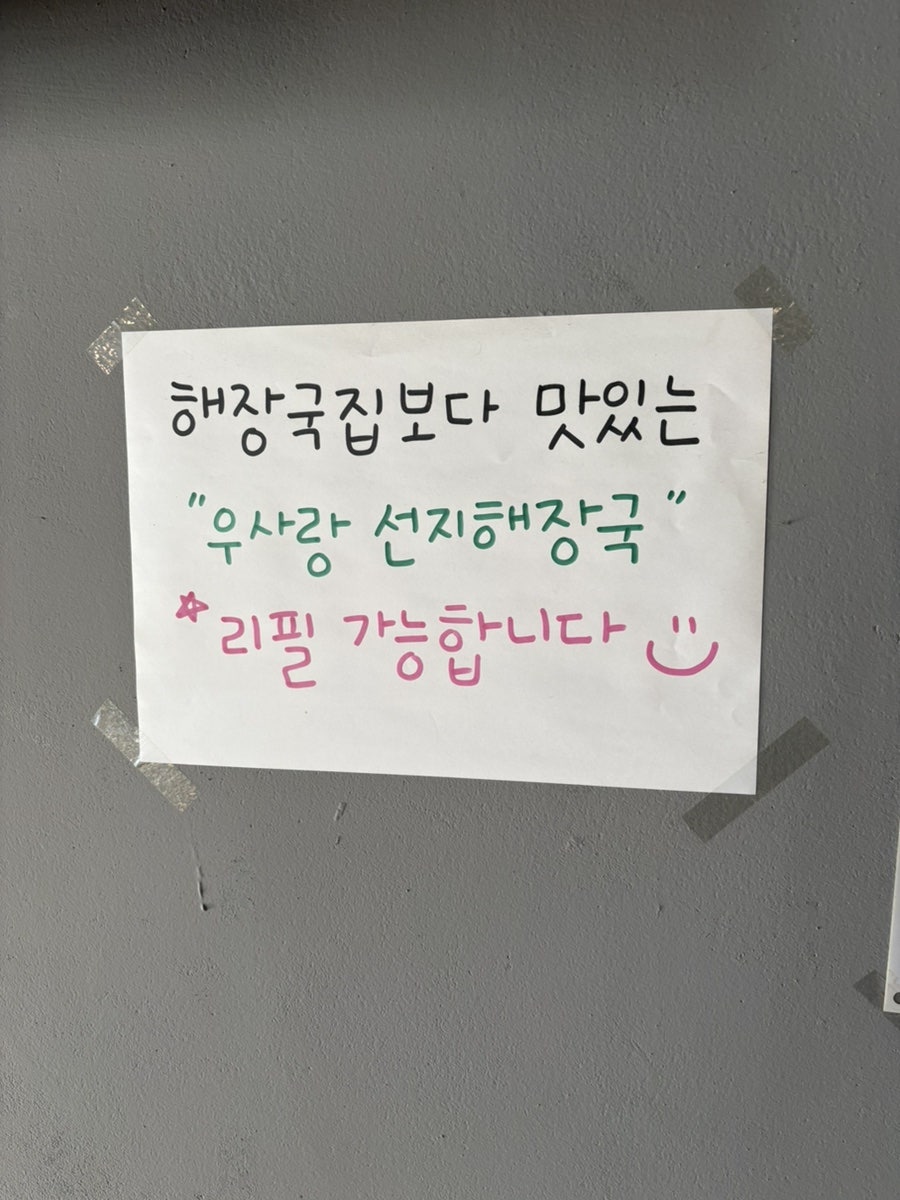 해장국집보다 맛있는
"우사랑 선지해장국"
☆리필 가능합니다